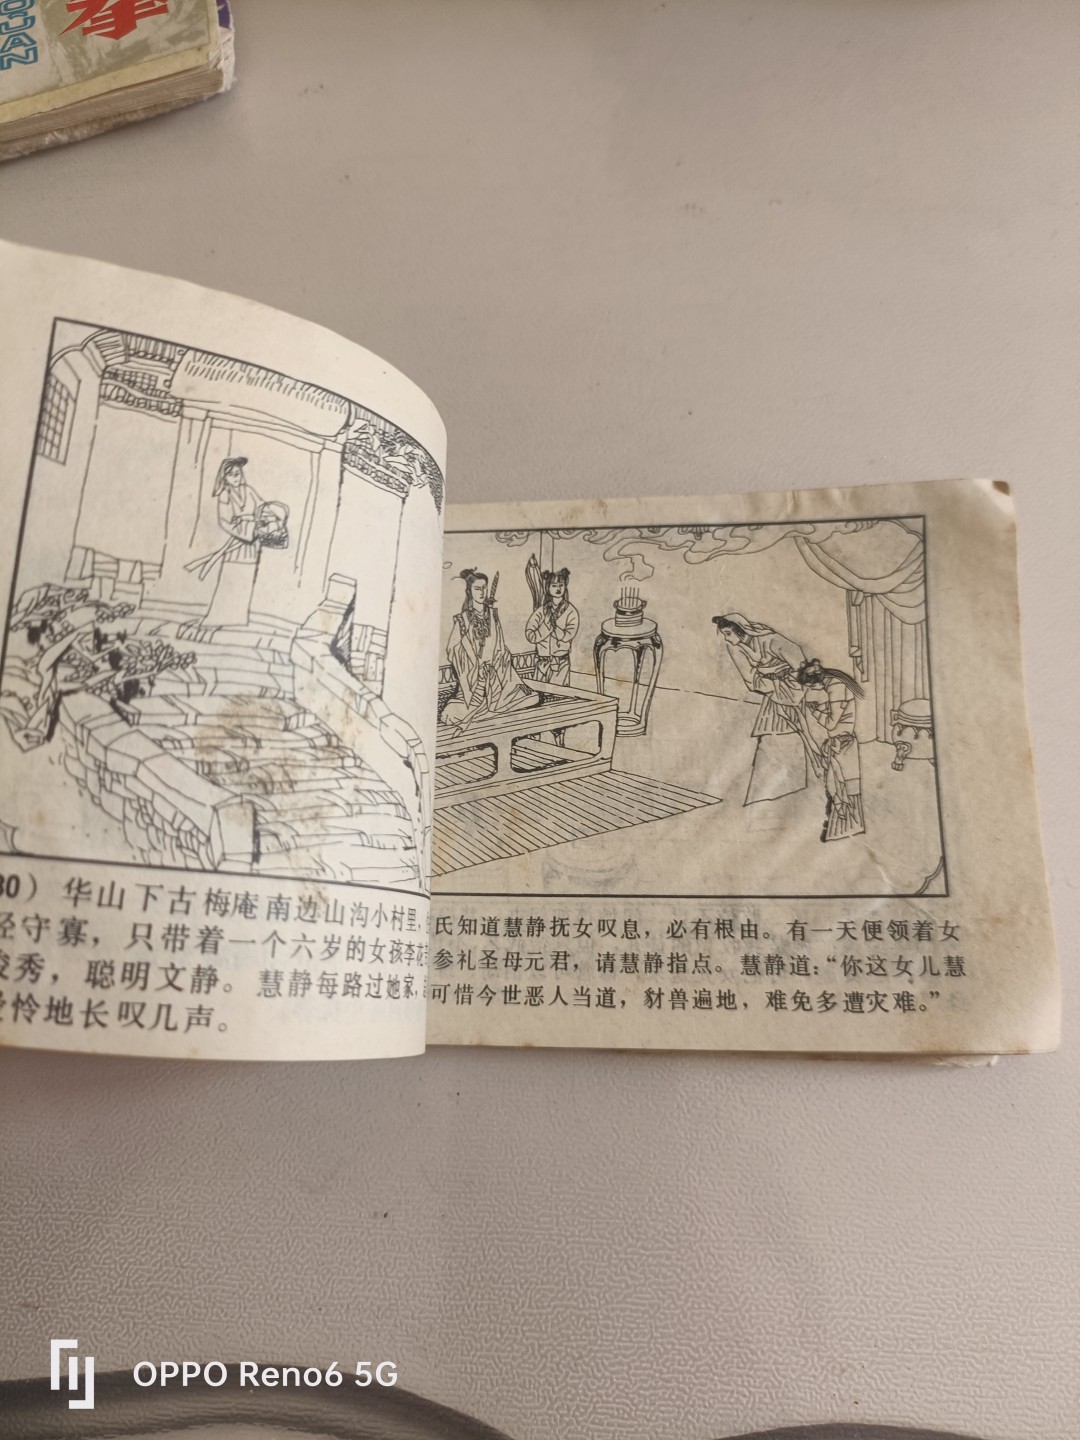 QUAN
拳
80）华山下古梅庵南边山沟小村里，
守寡，只带着一个六岁的女孩李花
俊秀，聪明文静。慧静每路过她家，
爱怜地长叹几声。
氏知道慧静抚女叹息，必有根由。有一天便领着女
参礼圣母元君，请慧静指点。慧静道：“你这女儿慧
可惜今世恶人当道，豺兽遍地，难免多遭灾难。”
OPPO Reno6 5G